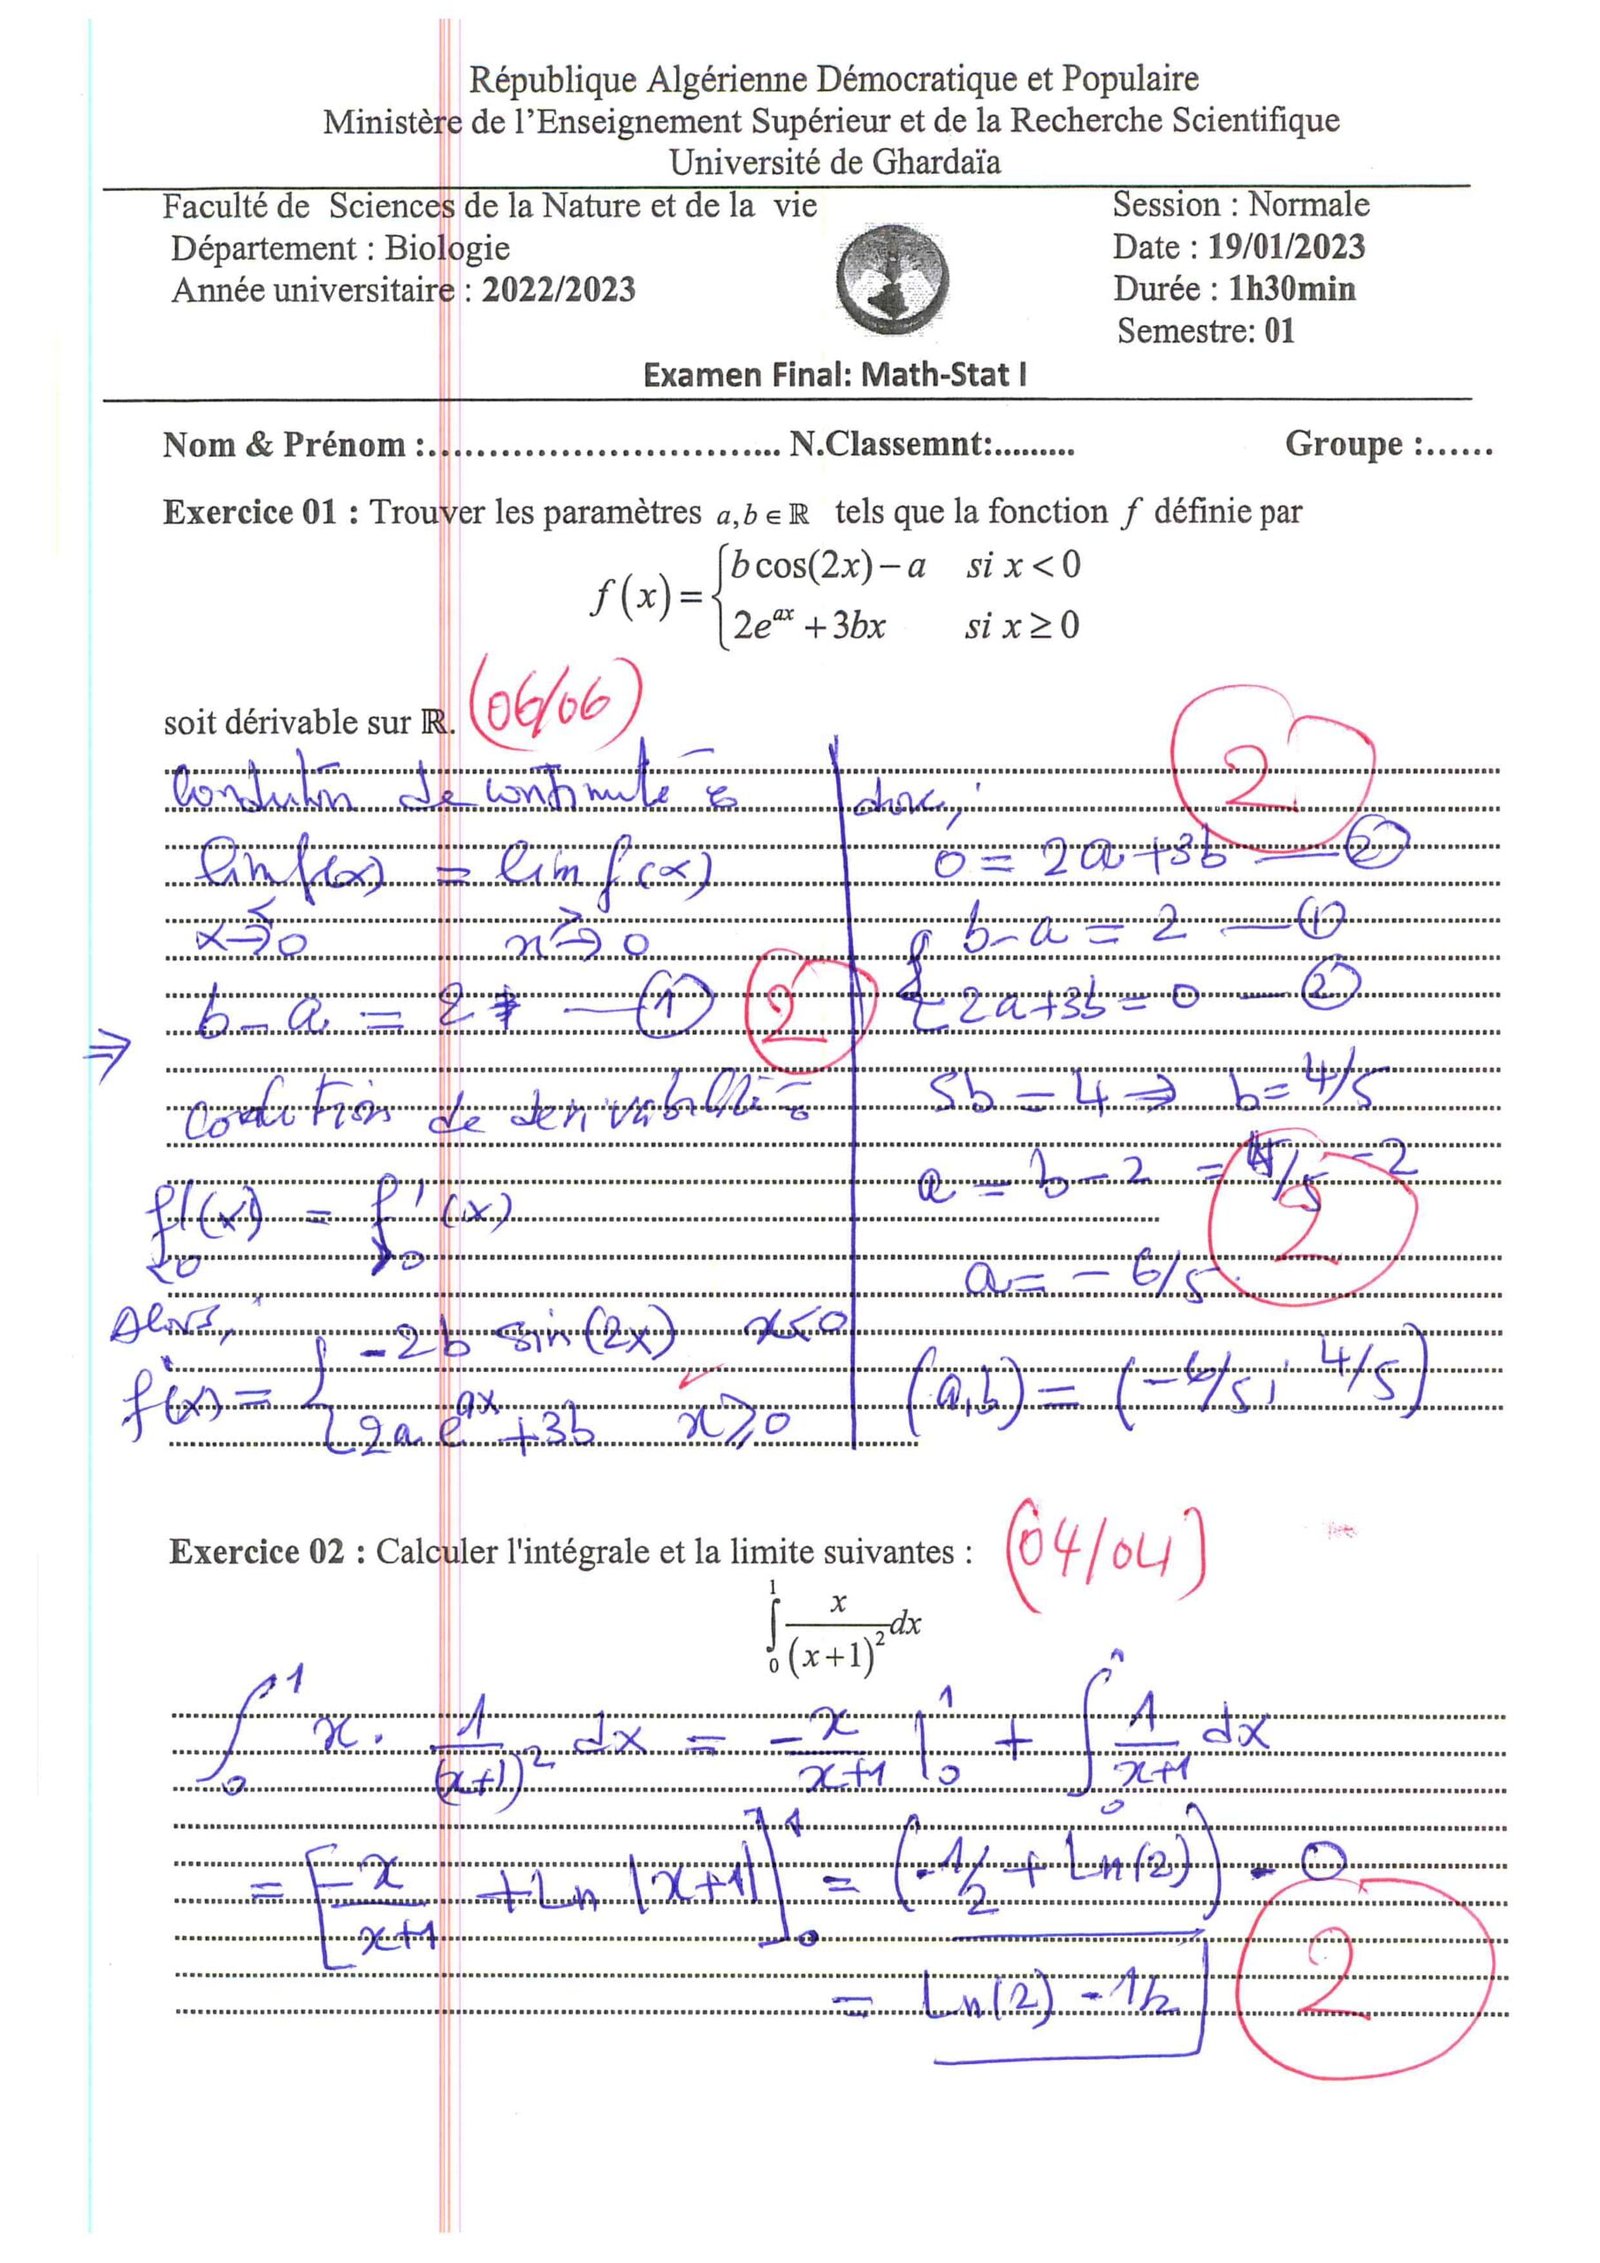 République Algérienne Démocratique et Populaire
Ministère de l'Enseignement Supérieur et de la Recherche Scientifique
Université de Ghardaïa
Faculté de Sciences de la Nature et de la vie
Session : Normale
Département : Biologie
Date : 19/01/2023
Année universitaire : 2022/2023
Durée : 1h30min
Semestre: 01
Examen Final: Math-Stat I
Nom & Prénom :................................ N.Classemnt:......... Groupe :......
Exercice 01 : Trouver les paramètres a,b ∈ ℝ tels que la fonction f définie par
f(x) = { b cos(2x) − a si x < 0
2e^{ax} + 3bx si x ≥ 0
soit dérivable sur ℝ. (06/06)
Condition de continuité :
lim f(x) = lim f(x)
x →< 0 x →> 0
⇒ b − a = 2 — ① 2
condition de derivabilité :
f'(x) = f'(x)
<0 >0
Alors,
f'(x) = { -2b sin(2x) x<0
2a e^{ax} + 3b x ≥ 0
donc, 2
0 = 2a + 3b — ②
{ b − a = 2 — ①
2a + 3b = 0 — ②
5b = 4 ⇒ b = 4/5
a = b − 2 = 4/5 − 2 2
a = − 6/5
(a,b) = (−6/5, 4/5)
Exercice 02 : Calculer l'intégrale et la limite suivantes : (04/04)
∫₀¹ x/(x+1)² dx
∫₀¹ x . 1/(x+1)² dx = -x/(x+1) |₀¹ + ∫₀¹ 1/(x+1) dx
= [-x/(x+1) + Ln |x+1|]₀¹ = (-1/2 + Ln(2)) - 0
= Ln(2) - 1/2 2